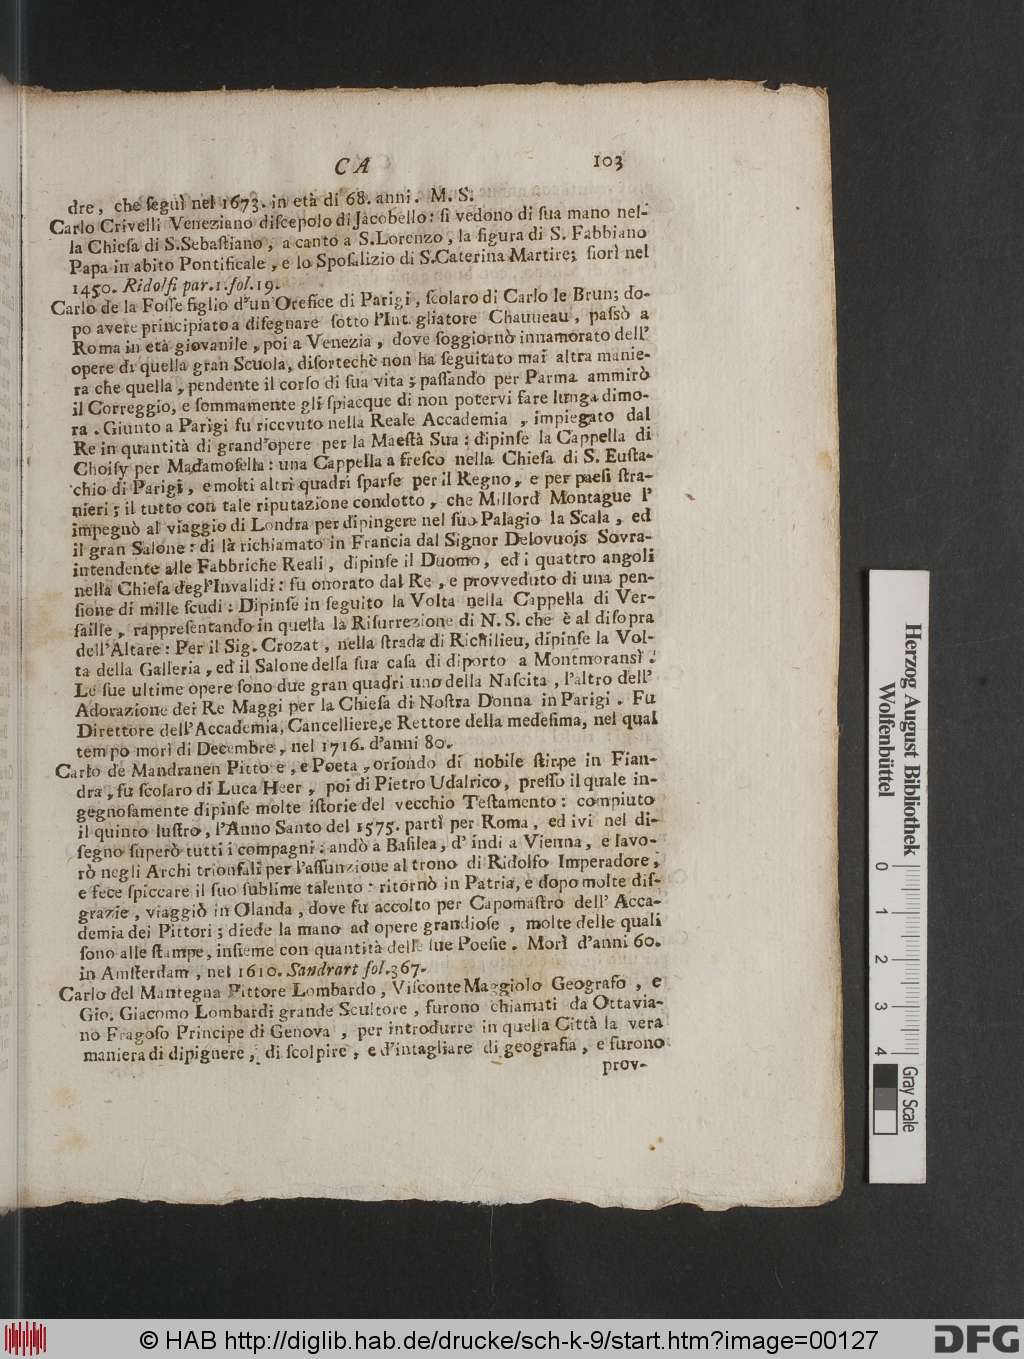 CA 103
dre, che ſeguì nel 1673. in età di 68. anni. M. S.
Carlo Crivelli Veneziano diſcepolo di Jacobello: ſi vedono di ſua mano nel-
la Chieſa di S.Sebaſtiano, a canto a S.Lorenzo, la figura di S. Fabbiano
Papa in abito Pontificale, e lo Spoſalizio di S.Caterina Martire; fiorì nel
1450. Ridolfi par.1.fol.19.
Carlo de la Foſſe figlio d'un Orefice di Parigi, ſcolaro di Carlo le Brun; do-
po avere principiato a diſegnare ſotto l'Int. gliatore Chauueau, paſsò a
Roma in età giovanile, poi a Venezia, dove ſoggiornò innamorato dell'
opere di quella gran Scuola, diſortechè non ha ſeguitato mai altra manie-
ra che quella, pendente il corſo di ſua vita; paſſando per Parma ammirò
il Correggio, e ſommamente gli ſpiacque di non potervi fare lunga dimo-
ra. Giunto a Parigi fu ricevuto nella Reale Accademia, impiegato dal
Re in quantità di grand'opere per la Maeſtà Sua: dipinſe la Cappella di
Choiſy per Madamoſella: una Cappella a freſco nella Chieſa di S. Euſta-
chio di Parigi, e molti altri quadri ſparſe per il Regno, e per paeſi ſtra-
nieri; il tutto con tale riputazione condotto, che Millord Montague l'
impegnò al viaggio di Londra per dipingere nel ſuo Palagio la Scala, ed
il gran Salone: di là richiamato in Francia dal Signor Delovuojs Sovra-
intendente alle Fabbriche Reali, dipinſe il Duomo, ed i quattro angoli
nella Chieſa degl'Invalidi: fu onorato dal Re, e provveduto di una pen-
ſione di mille ſcudi: Dipinſe in ſeguito la Volta nella Cappella di Ver-
ſaille, rappreſentando in quella la Riſurrezione di N. S. che è al diſopra
dell'Altare: Per il Sig. Crozat, nella ſtrada di Richilieu, dipinſe la Vol-
ta della Galleria, ed il Salone della ſua caſa di diporto a Montmoransì.
Le ſue ultime opere ſono due gran quadri uno della Naſcita, l'altro dell'
Adorazione dei Re Maggi per la Chieſa di Noſtra Donna in Parigi. Fu
Direttore dell'Accademia, Cancelliere,e Rettore della medeſima, nel qual
tempo morì di Decembre, nel 1716. d'anni 80.
Carlo de Mandranen Pitto e, e Poeta, oriondo di nobile ſtirpe in Fian-
dra, fu ſcolaro di Luca Heer, poi di Pietro Udalrico, preſſo il quale in-
gegnoſamente dipinſe molte iſtorie del vecchio Teſtamento: compiuto
il quinto luſtro, l'Anno Santo del 1575. partì per Roma, ed ivi nel di-
ſegno ſuperò tutti i compagni: andò a Baſilea, d' indi a Vienna, e lavo-
rò negli Archi trionfali per l'aſſunzione al trono di Ridolfo Imperadore,
e fece ſpiccare il ſuo ſublime talento: ritornò in Patria, e dopo molte diſ-
grazie, viaggiò in Olanda, dove fu accolto per Capomaſtro dell' Acca-
demia dei Pittori; diede la mano ad opere grandioſe, molte delle quali
ſono alle ſtampe, inſieme con quantità delle ſue Poeſie. Morì d'anni 60.
in Amſterdam, nel 1610. Sandrart fol.367.
Carlo del Mantegna Pittore Lombardo, Viſconte Maggiolo Geografo, e
Gio. Giacomo Lombardi grande Scultore, furono chiamati da Ottavia-
no Fragoſo Principe di Genova, per introdurre in quella Città la vera
maniera di dipignere, di ſcolpire, e d'intagliare di geografia, e furono
prov-
Herzog August Bibliothek
Wolfenbüttel
0 1 2 3 4
Gray Scale
© HAB http://diglib.hab.de/drucke/sch-k-9/start.htm?image=00127
DFG